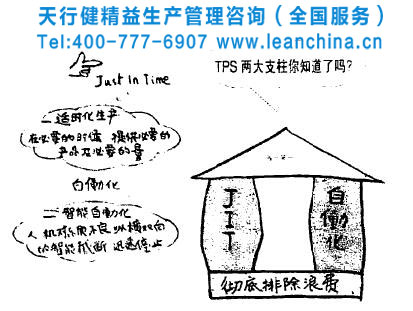 天行健精益生产管理咨询（全国服务）
Tel:400-777-6907 www.leanchina.cn
Just In Time
TPS 两大支柱你知道了吗？
一 适时化生产
在必要的时候 提供必要的
产品及必要的量
自働化
二 智能自働化
人 机 不良
智能 判断 迅速停止
JIT
自働化
彻底排除浪费